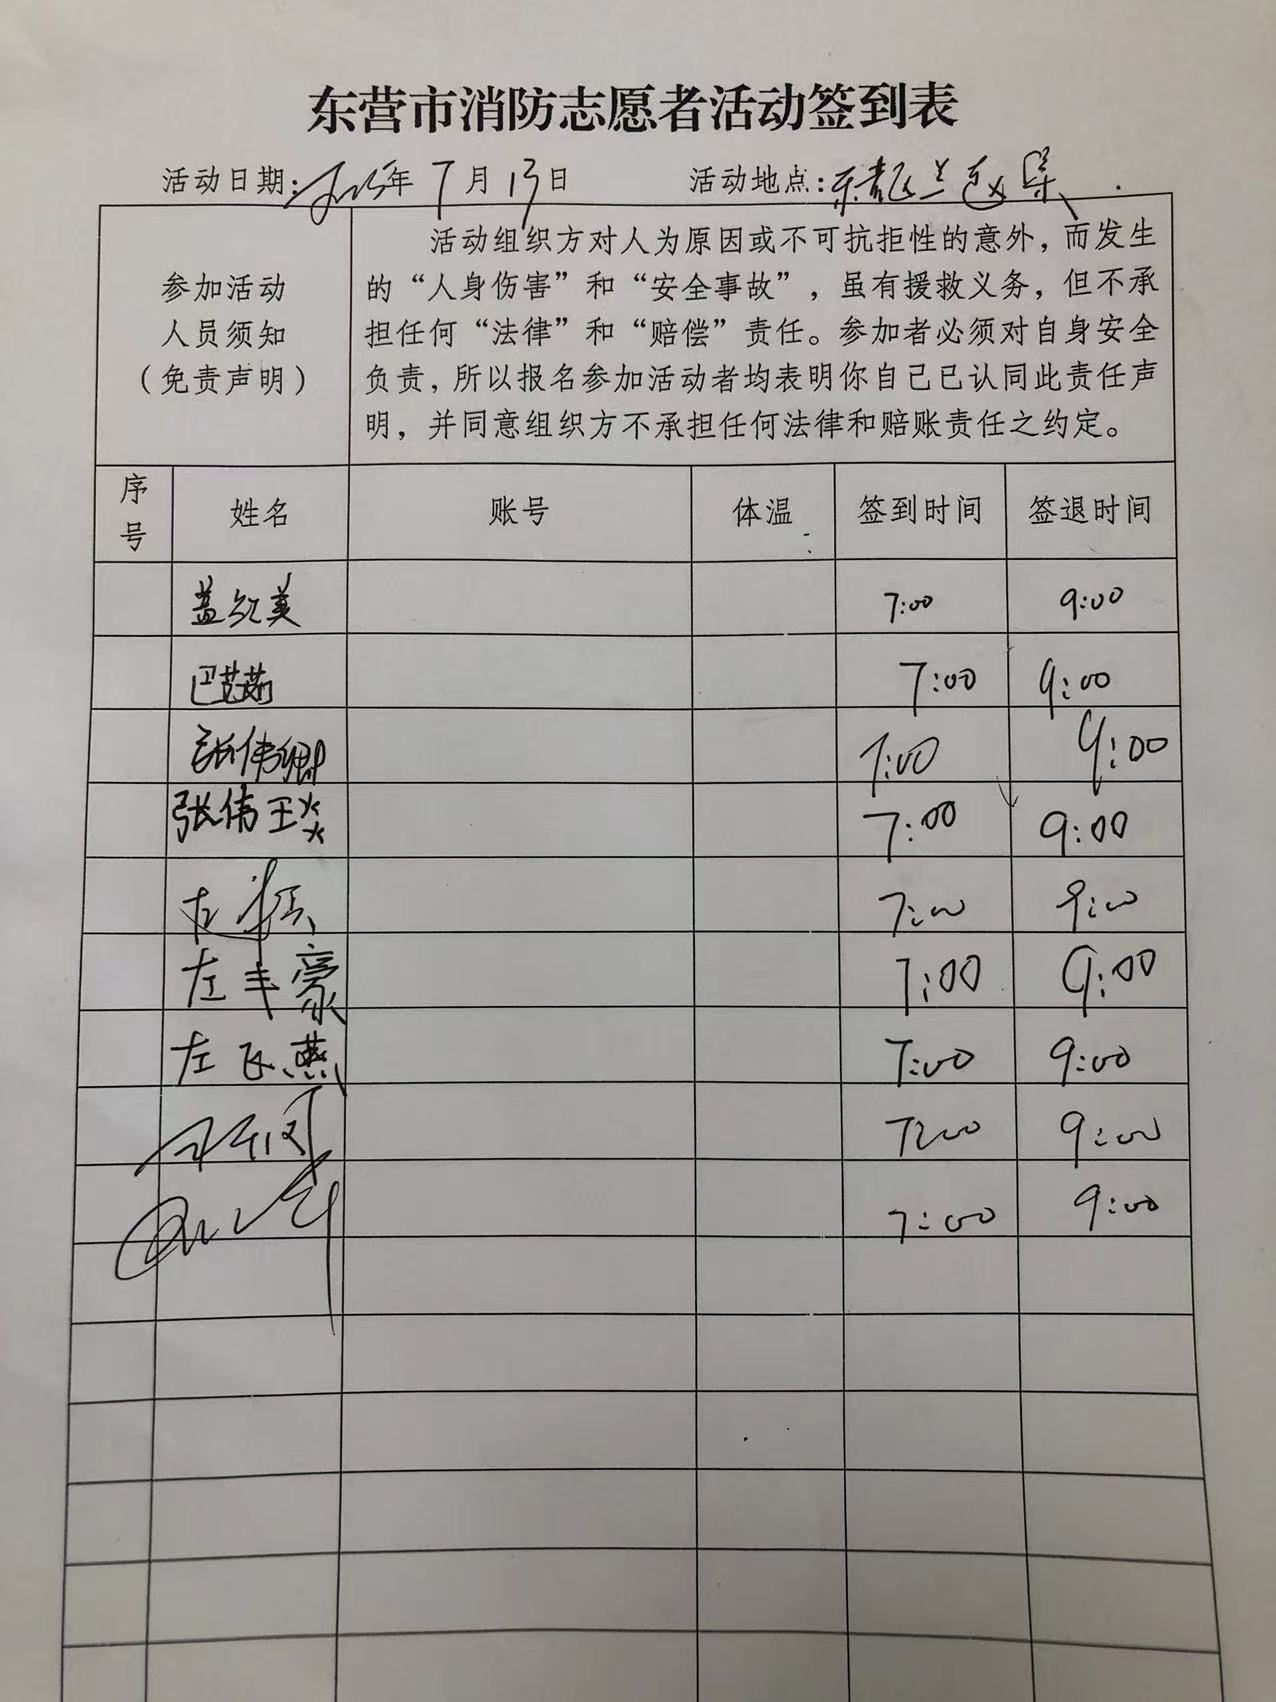 东营市消防志愿者活动签到表
活动日期: 2025年 7月 13日 活动地点:
参加活动
人员须知
(免责声明)
活动组织方对人为原因或不可抗拒性的意外，而发生
的“人身伤害”和“安全事故”，虽有援救义务，但不承
担任何“法律”和“赔偿”责任。参加者必须对自身安全
负责，所以报名参加活动者均表明你自己已认同此责任声
明，并同意组织方不承担任何法律和赔账责任之约定。
序号 姓名 账号 体温 签到时间 签退时间
盖红美 7:00 9:00
巴茹 7:00 9:00
张伟卿 7:00 9:00
张伟琰 7:00 9:00
左 7:00 9:00
左丰豪 7:00 9:00
左飞燕 7:00 9:00
7:00 9:00
7:00 9:00